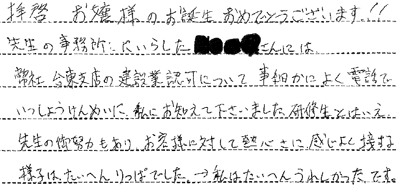 拝啓 お嬢様のお誕生おめでとうございます!!
先生の事務所にいらした さんには
弊社 台東支店の建設業認可について 事細かによく電話で
いっしょうけんめいに、私にお知えて下さいました 研修生とはいえ
先生の御努力もあり、お客様に対して熱心さに感じよく接する
様子は、たいへんりっぱでした。→私はたいへんうれしかったです。